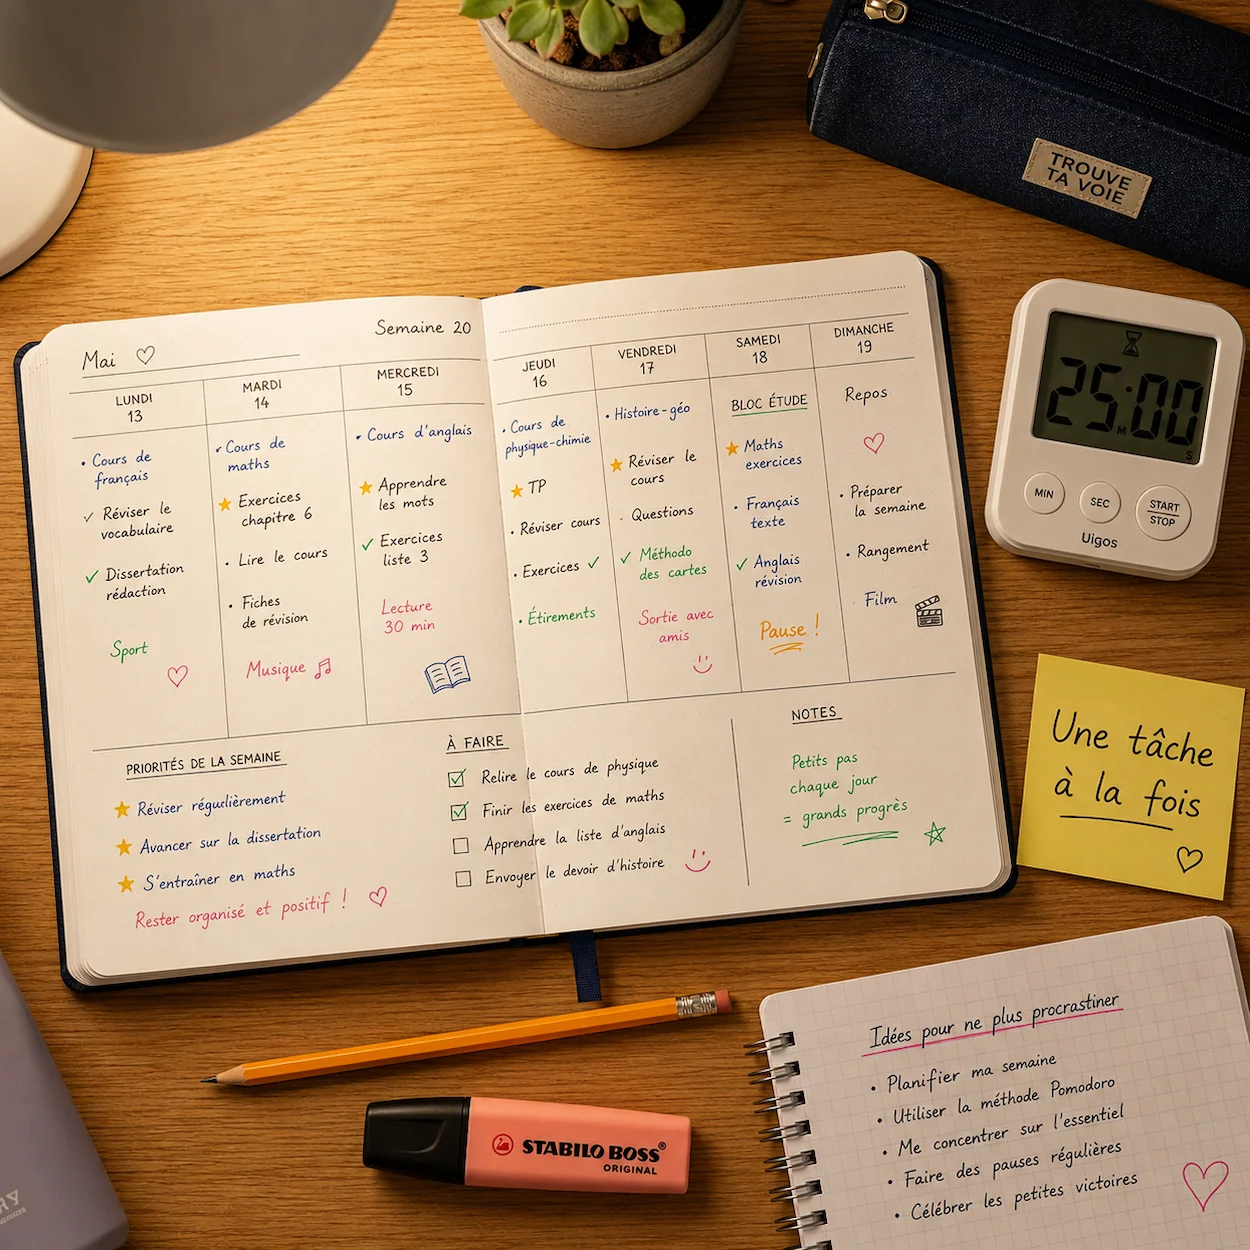 TROUVE
TA VOIE
Mai
Semaine 20
LUNDI
13
• Cours de
français
✓ Réviser le
vocabulaire
✓ Dissertation
rédaction
Sport
MARDI
14
• Cours de
maths
★ Exercices
chapitre 6
• Lire le cours
• Fiches
de révision
Musique
MERCREDI
15
• Cours d'anglais
★ Apprendre
les mots
✓ Exercices
liste 3
Lecture
30 min
JEUDI
16
• Cours de
physique-chimie
★ TP
• Réviser cours
• Exercices ✓
• Étirements
VENDREDI
17
• Histoire-géo
★ Réviser le
cours
• Questions
✓ Méthodo
des cartes
Sortie avec
amis
SAMEDI
18
BLOC ÉTUDE
★ Maths
exercices
• Français
texte
✓ Anglais
révision
Pause !
DIMANCHE
19
Repos
• Préparer
la semaine
• Rangement
Film
PRIORITÉS DE LA SEMAINE
★ Réviser régulièrement
★ Avancer sur la dissertation
★ S'entraîner en maths
Rester organisé et positif !
À FAIRE
☑ Relire le cours de physique
☑ Finir les exercices de maths
☐ Apprendre la liste d'anglais
☐ Envoyer le devoir d'histoire
NOTES
Petits pas
chaque jour
= grands progrès
25:00
M
S
MIN
SEC
START
STOP
Uigos
Une tâche
à la fois
STABILO BOSS®
ORIGINAL
Idées pour ne plus procrastiner
• Planifier ma semaine
• Utiliser la méthode Pomodoro
• Me concentrer sur l'essentiel
• Faire des pauses régulières
• Célébrer les petites victoires